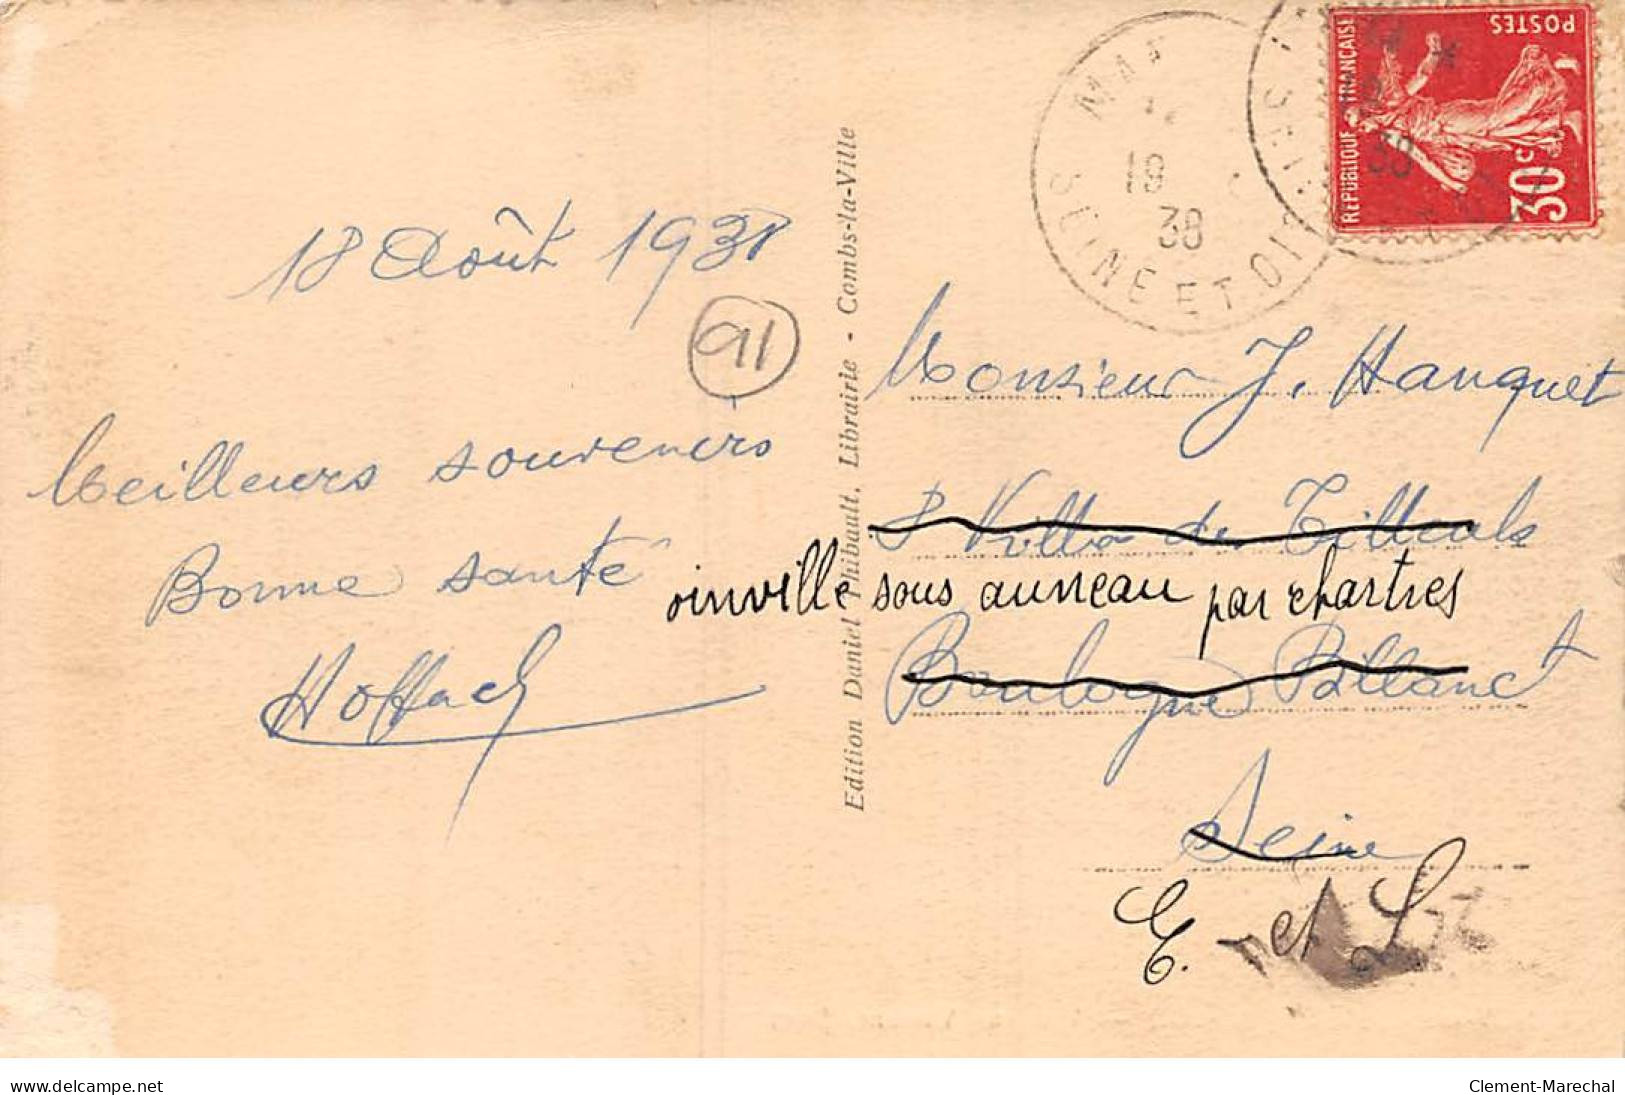 18 Août 1938
91
Meilleurs souvenirs
Bonne santé
Hoffach
Edition Daniel Thibault, Librairie - Combs-la-Ville
18
38
SEINE ET OISE
POSTES
REPUBLIQUE FRANÇAISE
30c
38
Monsieur J. Hanquet
Villa des Tilleuls
oinville sous auneau par chartres
Boulogne Billanct
Seine
E. et L.
delcampe.net
Clement-Marechal